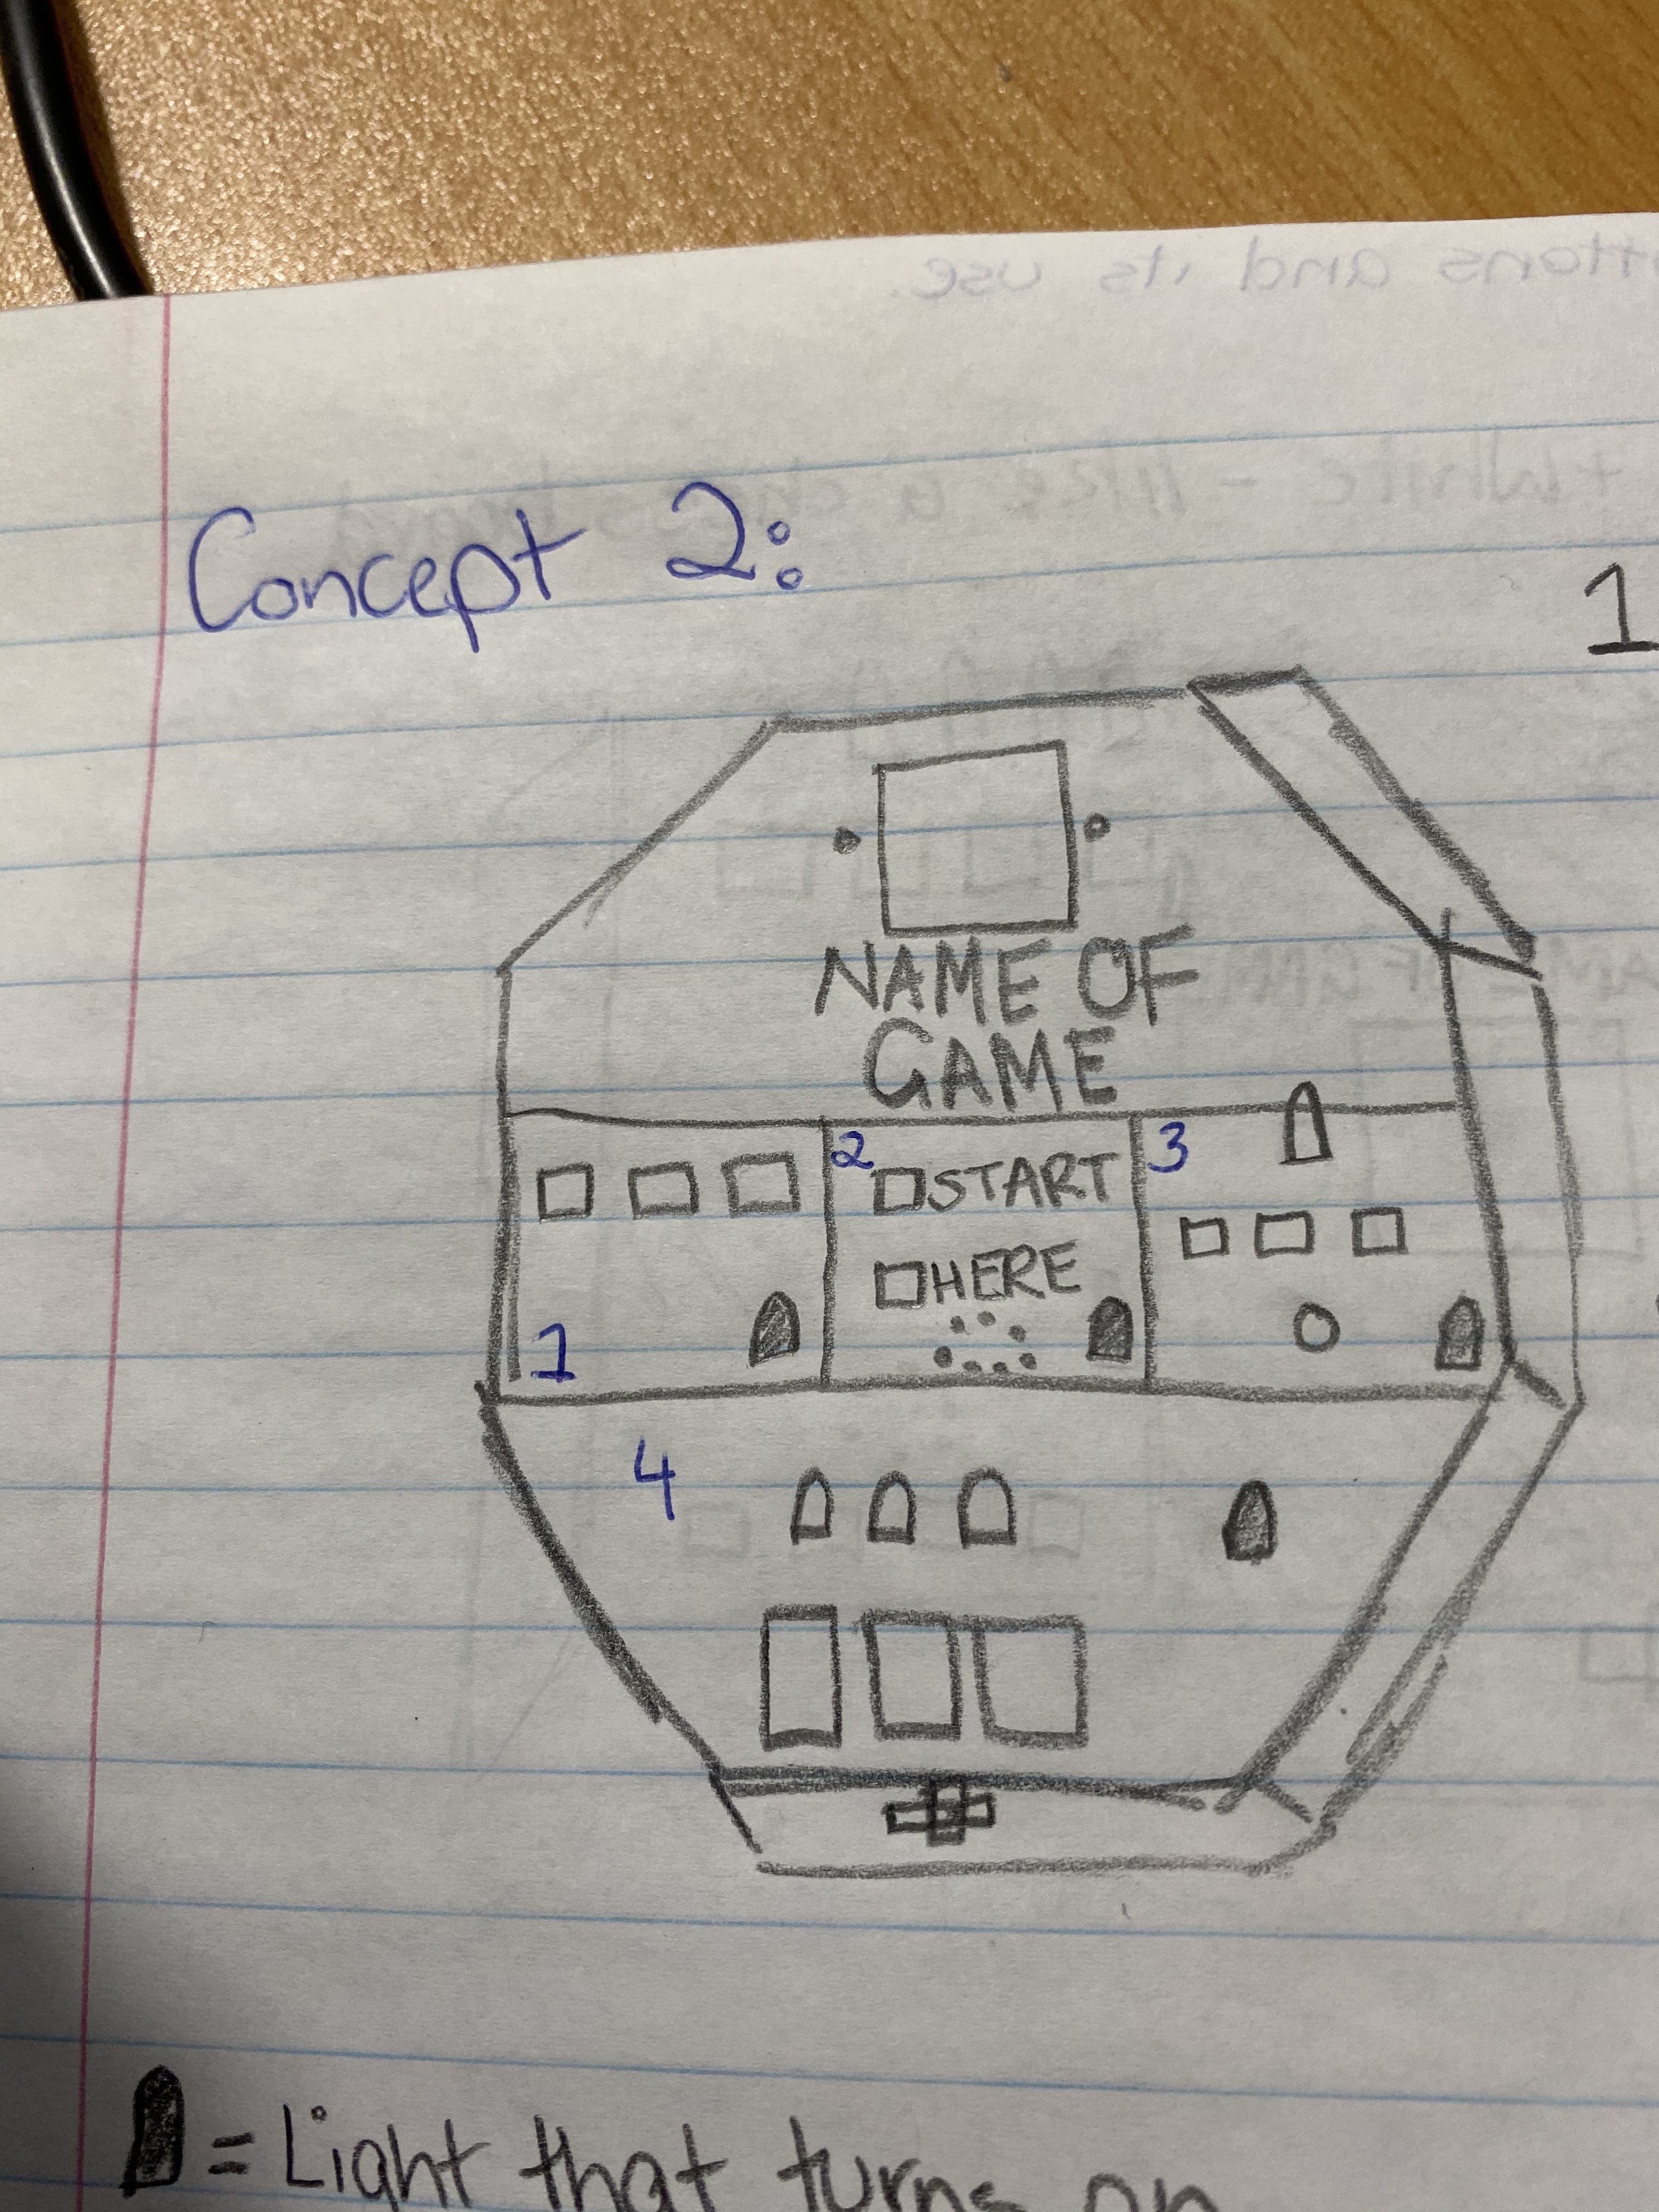 Concept 2:
1
NAME OF
GAME
2
START
HERE
3
1
4
= Light that turns on